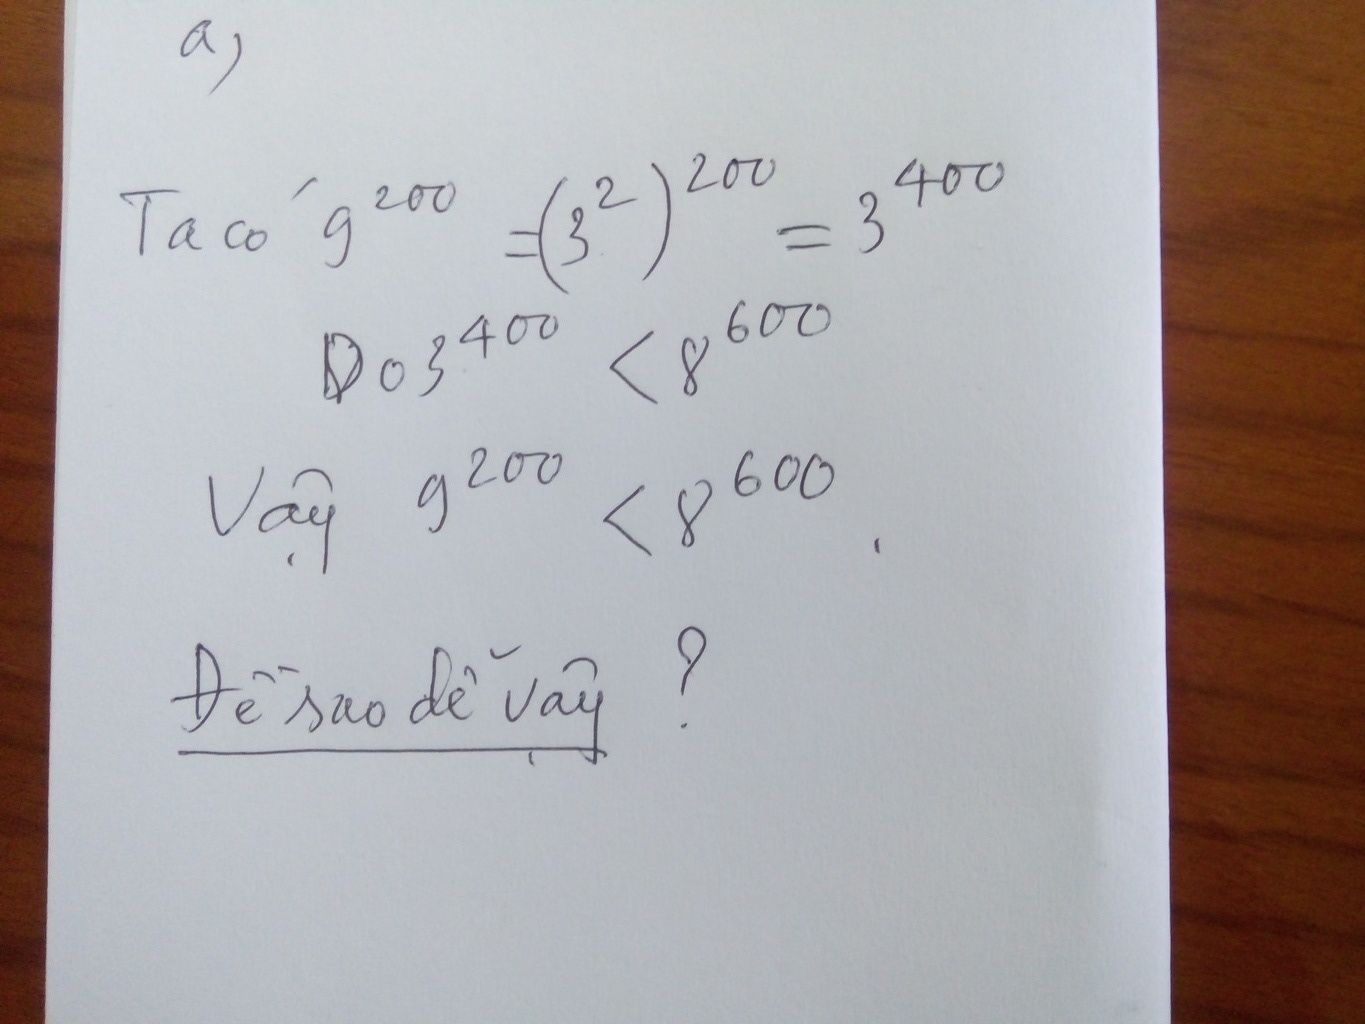 a,
Ta có 9^200 = (3^2)^200 = 3^400
Do 3^400 < 8^600
Vậy 9^200 < 8^600.
Đề sao dễ vậy ?